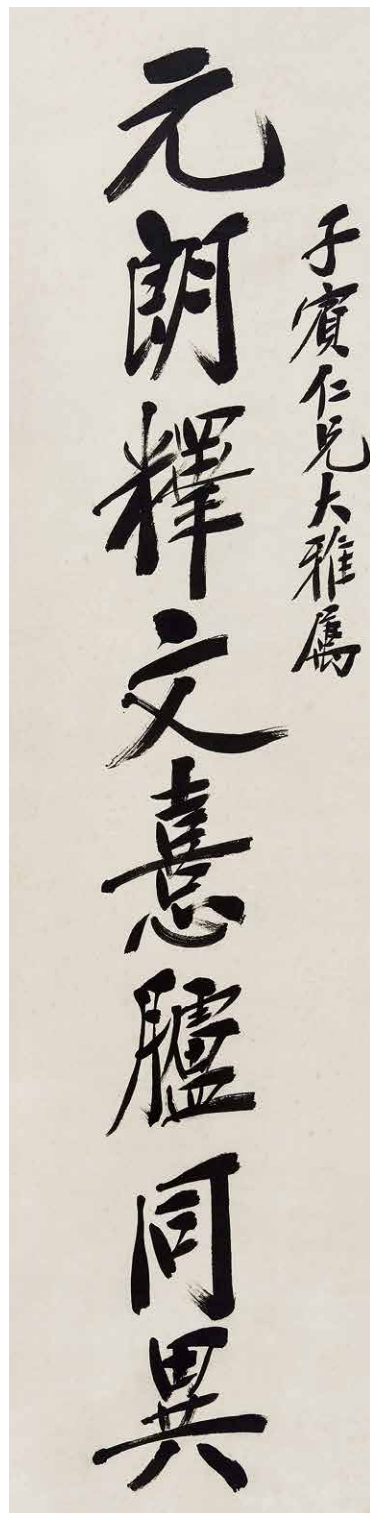 子賓仁兄大雅屬
元朗釋文憙臚同異